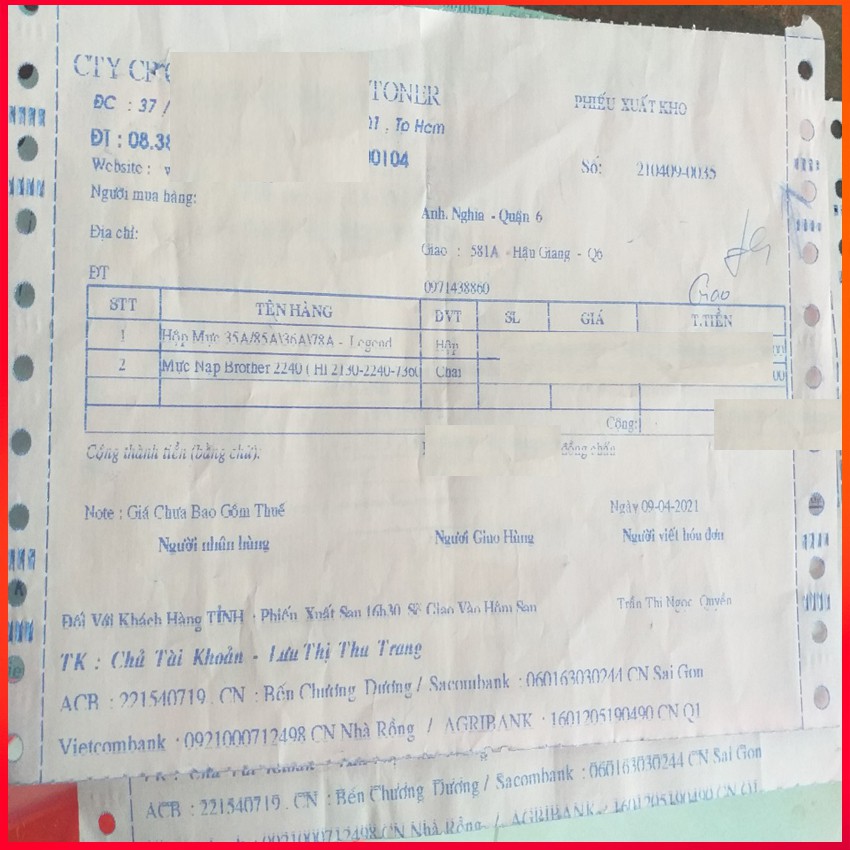 CTY CP TONER
PHIẾU XUẤT KHO
ĐC : 37 / , Tp Hcm
ĐT : 08.38 0104
Website :
Số: 210409-0035
Người mua hàng: Anh. Nghĩa - Quận 6
Địa chỉ: Giao : 581A - Hậu Giang - Q6
ĐT 0971438860
Giao
STT TÊN HÀNG ĐVT SL GIÁ T.TIỀN
1 Hộp Mực 35A/85A\36A\78A - Legend Hộp
2 Mực Nạp Brother 2240 ( Hl 2130-2240-7360 Chai 00
Cộng:
Cộng thành tiền (bằng chữ): đồng chẵn
Note : Giá Chưa Bao Gồm Thuế
Ngày 09-04-2021
Người nhận hàng Người Giao Hàng Người viết hóa đơn
Đối Với Khách Hàng TỈNH : Phiếu Xuất Sau 16h30 Sẽ Giao Vào Hôm Sau
Trần Thị Ngọc Quyền
TK : Chủ Tài Khoản - Lưu Thị Thu Trang
ACB : 221540719 . CN : Bến Chương Dương / Sacombank : 060163030244 CN Sai Gon
Vietcombank : 0921000712498 CN Nhà Rồng / AGRIBANK : 1601205190490 CN Q1
ACB : 221540719 . CN : Bến Chương Dương / Sacombank : 060163030244 CN Sai Gon
CN Nhà Rồng / AGRIBANK : 1601205190490 CN Q1